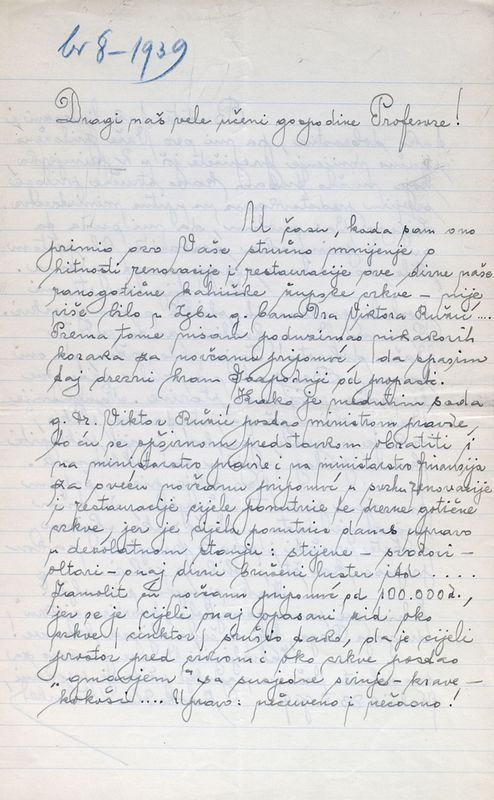 br 8-1939
Dragi naš vele učeni gospodine Profesore!
U času, kada sam ono
primio ovo Vaše stručno mnijenje o
hitnosti renovacije i restauracije ove divne naše
ranogotične kalničke župske crkve – nije
više bilo u Zgbu g. bana Dra Viktora Ružić....
Prema tome nisam poduzimao nikakovih
koraka za novčanu pripomoć, da spasim
taj drevni hram Gospodnji od propasti.
Kako je međutim sada
g. dr. Viktor Ružić postao ministrom pravde,
to ću se opširnom predstavkom obratiti i
na ministarstvo pravde i na ministarstvo finansija
za oveću novčanu pripomoć u svrhu renovacije
i restauracije cijele pomutnje te drevne gotične
crkve, jer je cijela pomutnja danas upravo
u desolatnom stanju: stijene – svodovi –
oltari – onaj divni brušeni luster itd.....
Zamolit ću novčanu pripomoć od 100.000 d.,
jer se je cijeli onaj opasani zid oko
crkve / cinktor / srušio tako, da je cijeli
prostor pred crkvom i oko crkve postao
"gnojem" za susjedne svinje – krave –
kokoši.... Upravo: nečuveno i nečasno!